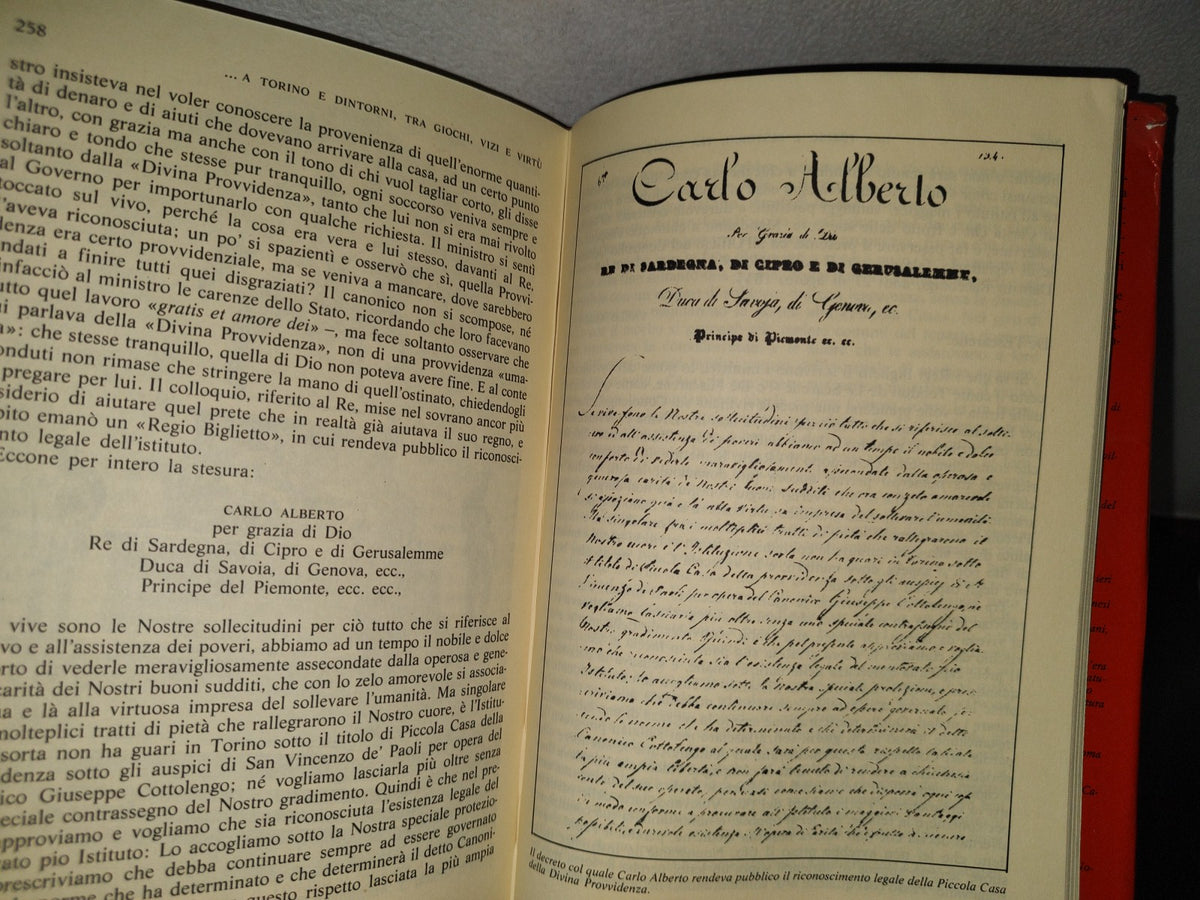 258
... A TORINO E DINTORNI, TRA GIOCHI, VIZI E VIRTÙ
stro insisteva nel voler conoscere la provenienza di quell'enorme quanti-
tà di denaro e di aiuti che dovevano arrivare alla casa, ad un certo punto
l'altro, con grazia ma anche con il tono di chi vuol tagliar corto, gli disse
chiaro e tondo che stesse pur tranquillo, ogni soccorso veniva sempre e
soltanto dalla «Divina Provvidenza», tanto che lui non si era mai rivolto
al Governo per importunarlo con qualche richiesta. Il ministro si sentì
toccato sul vivo, perché la cosa era vera e lui stesso, davanti al Re,
l'aveva riconosciuta; un po' si spazientì e osservò che sì, quella Provvi-
denza era certo provvidenziale, ma se veniva a mancare, dove sarebbero
ndati a finire tutti quei disgraziati? Il canonico non si scompose, né
infacciò al ministro le carenze dello Stato, ricordando che loro facevano
utto quel lavoro «gratis et amore dei» –, ma fece soltanto osservare che
i parlava della «Divina Provvidenza», non di una provvidenza «uma-
a»: che stesse tranquillo, quella di Dio non poteva avere fine. E al conte
onduti non rimase che stringere la mano di quell'ostinato, chiedendogli
pregare per lui. Il colloquio, riferito al Re, mise nel sovrano ancor più
siderio di aiutare quel prete che in realtà già aiutava il suo regno, e
bito emanò un «Regio Biglietto», in cui rendeva pubblico il riconosci-
nto legale dell'istituto.
Eccone per intero la stesura:
CARLO ALBERTO
per grazia di Dio
Re di Sardegna, di Cipro e di Gerusalemme
Duca di Savoia, di Genova, ecc.,
Principe del Piemonte, ecc. ecc.,
vive sono le Nostre sollecitudini per ciò tutto che si riferisce al
vo e all'assistenza dei poveri, abbiamo ad un tempo il nobile e dolce
orto di vederle meravigliosamente assecondate dalla operosa e gene-
carità dei Nostri buoni sudditi, che con lo zelo amorevole si associa-
a e là alla virtuosa impresa del sollevare l'umanità. Ma singolare
molteplici tratti di pietà che rallegrarono il Nostro cuore, è l'Istitu-
sorta non ha guari in Torino sotto il titolo di Piccola Casa della
idenza sotto gli auspici di San Vincenzo de' Paoli per opera del
ico Giuseppe Cottolengo; né vogliamo lasciarla più oltre senza
eciale contrassegno del Nostro gradimento. Quindi è che nel pre-
approviamo e vogliamo che sia riconosciuta l'esistenza legale del
ato pio Istituto: Lo accogliamo sotto la Nostra speciale protezio-
prescriviamo che debba continuare sempre ad essere governato
norme che ha determinato e che determinerà il detto Canoni-
questo rispetto lasciata la più ampia
134.
Carlo Alberto
Per Grazia di Dio
RE DI SARDEGNA, DI CIPRO E DI GERUSALEMME,
Duca di Savoja, di Genova, ec.
Principe di Piemonte ec. ec.
Se vive sono le Nostre sollecitudini per ciò tutto che si riferisce al solle-
vo e all'assistenza dei poveri abbiamo ad un tempo il nobile e dolce
conforto di vederle meravigliosamente assecondate dalla operosa e
generosa carità de Nostri buoni sudditi che con zelo amorevole
si associano quà e là alla virtuosa impresa del sollevare l'umanità.
Ma singolare fra i molteplici tratti di pietà che rallegrarono il
Nostro cuore è l'Istituzione sorta non ha guari in Torino sotto
il titolo di Piccola Casa della provvidenza sotto gli auspicj di S.
Vincenzo de Paoli per opera del Canonico Giuseppe Cottolengo, nè
vogliamo lasciarla più oltre senza uno speciale contrassegno del
Nostro gradimento. Quindi è che
Il decreto col quale Carlo Alberto rendeva pubblico il riconoscimento legale della Piccola Casa
della Divina Provvidenza.